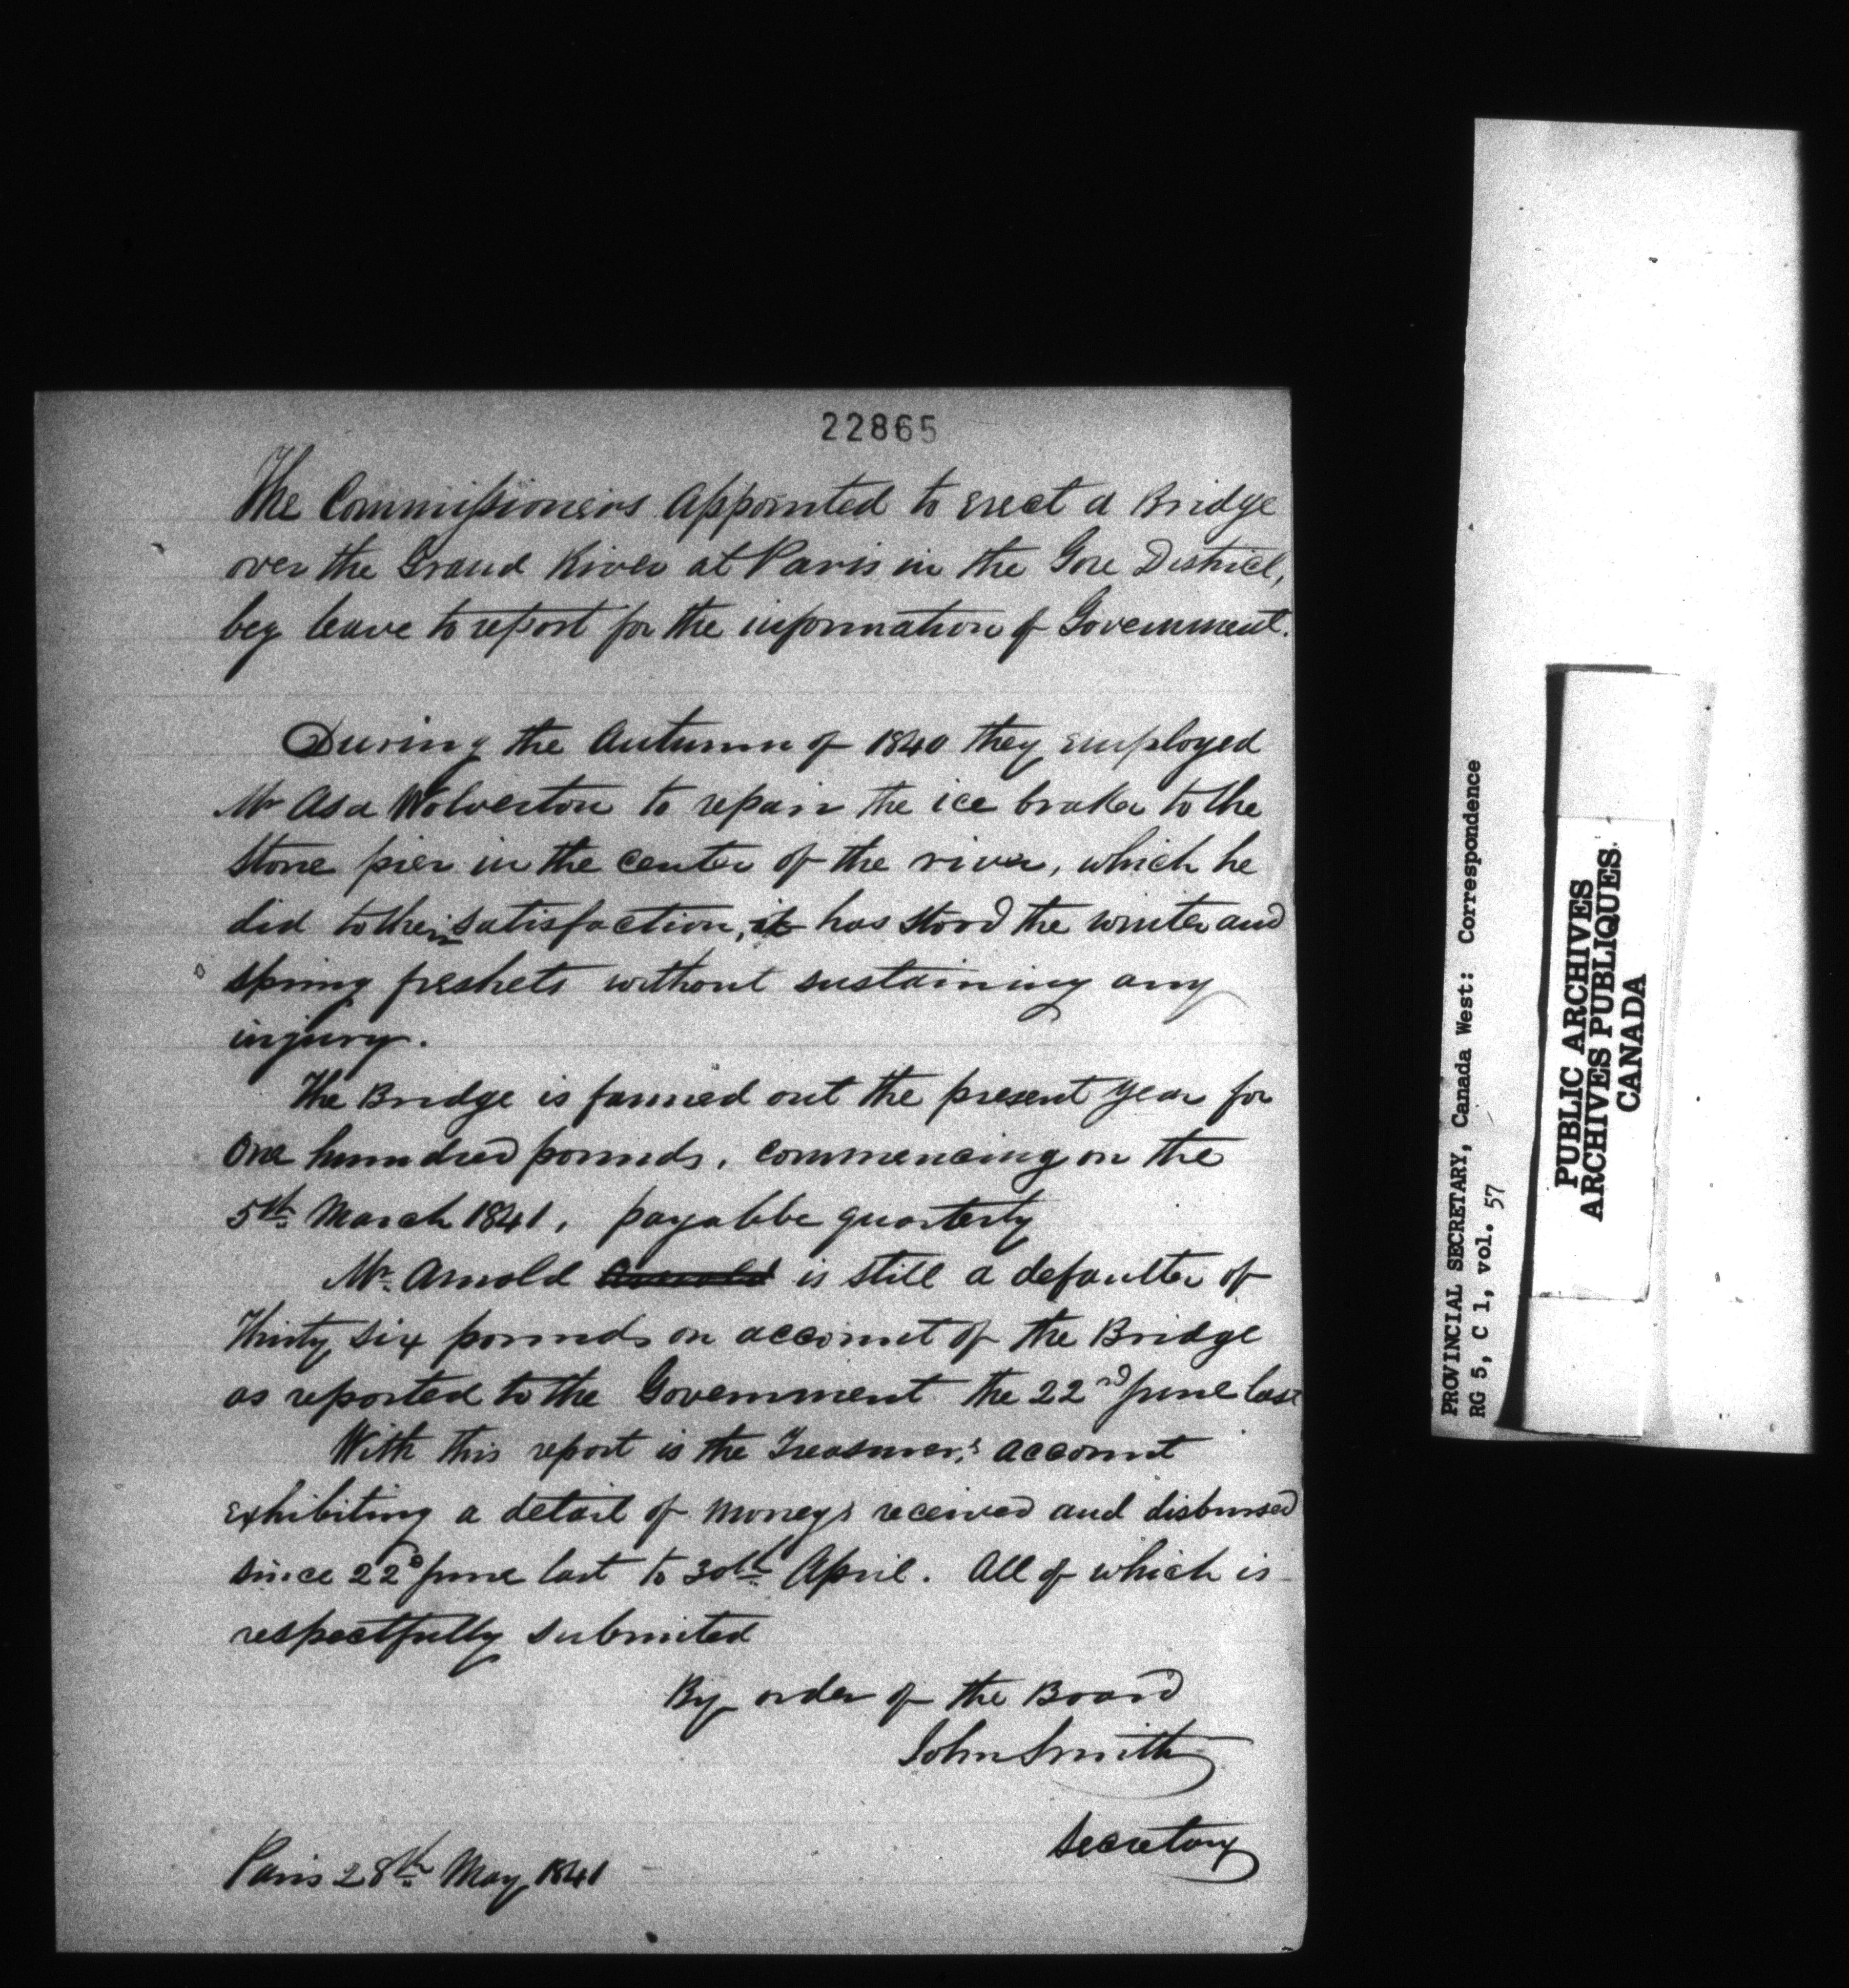 22865
The Commissioners Appointed to erect a Bridge
over the Grand River at Paris in the Gore District,
beg leave to report for the information of Government.
During the Autumn of 1840 they employed
Mr Asa Wolverton to repair the ice braker to the
Stone pier in the center of the river, which he
did to their satisfaction, it has stood the winter and
spring freshets without sustaining any
injury.
The Bridge is farmed out the present year for
One hunndred pounds, commencing on the
5th March 1841, payable quarterly
Mr. Arnold is still a defaulter of
Thirty six pounds on account of the Bridge
as reported to the Government the 22nd June last
With this report is the Treasurer's account
exhibiting a detail of moneys received and disbursed
since 22d June last to 30th April. All of which is
respectfully submited
By order of the Board
John Smith
Secretary
Paris 28th May 1841
PROVINCIAL SECRETARY, Canada West: Correspondence
RG 5, C 1, vol. 57
PUBLIC ARCHIVES
ARCHIVES PUBLIQUES
CANADA